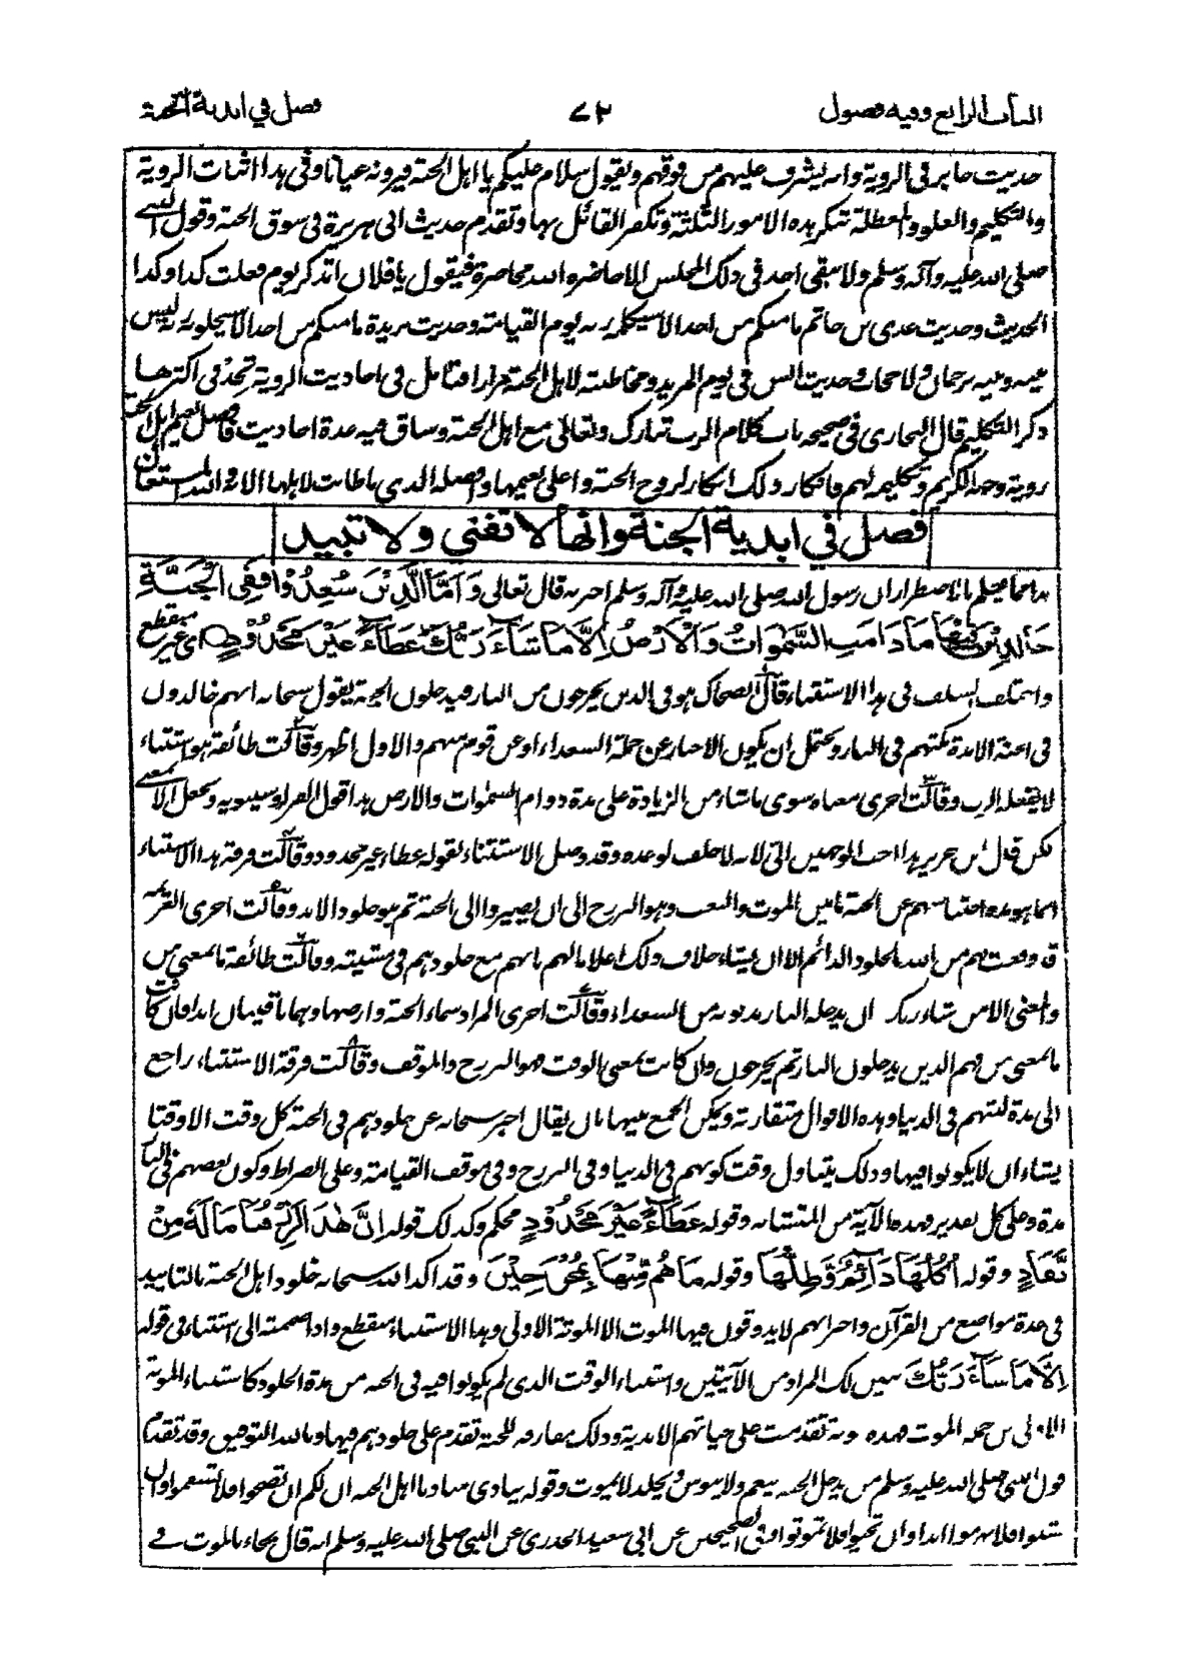 الباب الرابع وفيه فصول
٧٢
فصل في ابدية الجنة
حديث جابر في الروية وانه يشرف عليهم من فوقهم ويقول سلام عليكم يا اهل الجنة فيرونه عيانا وفي هذا اثبات الروية
والتكليم والعلو والمعطلة تنكر هذه الامور الثلثة وتكفر القائل بها وتقدم حديث ابي هريرة في سوق الجنة وقول النبي
صلى الله عليه وآله وسلم ولا يبقى احد في ذلك المجلس الا حاضره الله محاضرة فيقول يا فلان اتذكر يوم فعلت كذا وكذا
الحديث وحديث عدي بن حاتم ما منكم من احد الا سيكلمه ربه يوم القيامة وحديث بريدة ما منكم من احد الا سيخلو به ربه ليس
بينه وبينه ترجمان ولا حجاب وحديث انس في يوم المزيد ومخاطبته لاهل الجنة مرارا فتامل في احاديث الروية تجد في اكثرها
ذكر التكليم قال البخاري في صحيحه باب كلام الرب تبارك وتعالى مع اهل الجنة وساق فيه عدة احاديث فافضل نعيم اهل الجنة
روية وجهه الكريم وتكليمه لهم فانكار ذلك انكار لروح الجنة واعلى نعيمها وافضله الذي ما طابت لاهلها الا به والله المستعان
فصل في ابدية الجنة وانها لا تفنى ولا تبيد
هذا مما يعلم بالاضطرار ان رسول الله صلى الله عليه وآله وسلم اخبر به قال تعالى وَاَمَّا الَّذِيْنَ سُعِدُوْا فَفِى الْجَنَّةِ
خَالِدِيْنَ فِيْهَا مَا دَامَتِ السَّمٰوَاتُ وَالْاَرْضُ اِلَّا مَا شَاءَ رَبُّكَ عَطَاءً غَيْرَ مَجْذُوْذٍ اى غير مقطوع
واختلف السلف في هذا الاستثناء قال الضحاك هو في الذين يخرجون من النار فيدخلون الجنة يقول سبحانه انهم خالدون
في الجنة الا مدة مكثهم في النار ويحتمل ان يكون الاخبار عن جملة السعداء او عن قوم منهم والاول اظهر وقالت طائفة هو استثناء
لا يفعله الرب وقالت اخرى معناه سوى ما شاء من الزيادة على مدة دوام السموات والارض هذا قول الفراء وسيبويه ويجعل الا بمعنى
لكن قال ابن جرير هذا احب الوجهين الي لانه لا خلف لوعده وقد وصل الاستثناء بقوله عطاء غير مجذوذ وقالت فرقة هذا الاستثناء
انما هو مدة احتباسهم عن الجنة ما بين الموت والبعث وهو البرزخ الى ان يصيروا الى الجنة ثم هو خلود الابد وقالت اخرى العزيمة
قد وقعت لهم من الله بالخلود الدائم الا ان يشاء خلاف ذلك اعلاما لهم بانهم مع خلودهم في مشيته وقالت طائفة ما بمعنى من
والمعنى الا من شاء ربك ان يدخله النار بذنوبه من السعداء وقالت اخرى المراد سماء الجنة وارضها وهما باقيان ابدا وان كانت
ما بمعنى من فهم الذين يدخلون النار ثم يخرجون وان كانت بمعنى الوقت فهو البرزخ والموقف وقالت فرقة الاستثناء راجع
الى مدة لبثهم في الدنيا وهذه الاقوال متقاربة ويمكن الجمع بينها بان يقال اخبر سبحانه عن خلودهم في الجنة كل وقت الا وقتا
يشاء ان لا يكونوا فيها وذلك يتناول وقت كونهم في الدنيا وفي البرزخ وفي موقف القيامة وعلى الصراط وكون بعضهم في النار
مدة وعلى كل تقدير وهذه الآية من المتشابه وقوله عَطَاءً غَيْرَ مَجْذُوْذٍ محكم وكذلك قوله اِنَّ هٰذَا لَرِزْقُنَا مَا لَهٗ مِنْ
نَّفَادٍ وقوله اُكُلُهَا دَائِمٌ وَّظِلُّهَا وقوله مَا هُمْ مِّنْهَا بِمُخْرَجِيْنَ وقد اكد الله سبحانه خلود اهل الجنة بالتابيد
في عدة مواضع من القرآن واخبر انهم لا يذوقون فيها الموت الا الموتة الاولى وهذا الاستثناء منقطع واذا ضممته الى استثناء في قوله
اِلَّا مَا شَاءَ رَبُّكَ تبين لك المراد من الآيتين واستثناء الوقت الذي لم يكونوا فيه في الجنة من مدة الخلود كاستثناء الموتة
الاولى من جملة الموت فهذه موتة تقدمت على حياتهم الابدية وذلك مفارقة للجنة تقدم على خلودهم فيها وبالله التوفيق وقد تقدم
قول النبي صلى الله عليه وسلم من يدخل الجنة ينعم ولا يبوس ويخلد لا يموت وقوله ينادي مناد يا اهل الجنة ان لكم ان تصحوا فلا تسقموا وان
تشبوا فلا تهرموا ابدا وان تحيوا فلا تموتوا وفي الصحيحين عن ابي سعيد الخدري عن النبي صلى الله عليه وسلم انه قال يجاء بالموت في